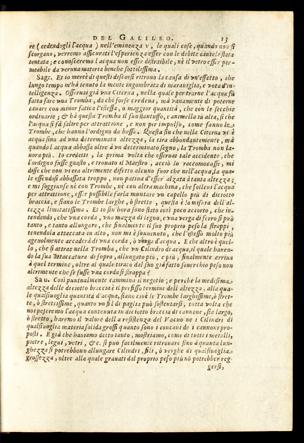 DEL GALILEO. 13
re (cedendogli l'acqua) nell'eminenza V, le quali cose, quando non si
scorgano, verremo assicurati l'esperienza esser con le debite cautele stata
tentata; e conosceremo l'acqua non esser distraibile, nè il vetro esser per-
meabile da veruna materia benche sottilissima.
Sagr. Et io mercè di questi discorsi ritrovo la causa di un'effetto, che
lungo tempo m'hà tenuto la mente ingombrata di maraviglia, e vota d'in-
telligenza. Osservai già una Citerna, nella quale per trarne l'acqua fù
fatta fare una Tromba, da chi forse credeva, mà vanamente di poterne
cavare con minor fatica l'istessa, o maggior quantità, che con le secchie
ordinarie; & hà questa Tromba il suo stantuffo, e animella sù alta, sì che
l'acqua si fà salire per attrazzione, e non per impulso, come fanno le
Trombe, che hanno l'ordigno da basso. Questa sin che nella Citerna vi è
acqua sino ad una determinata altezza, la tira abbondantemente, mà
quando l'acqua abbassa oltre à un determinato segno, la Tromba non la-
vora più. Io credetti, la prima volta che osservai tale accidente, che
l'ordigno fusse guasto, e trovato il Maestro, acciò lo raccomodasse, mi
disse che non vi era altrimente difetto alcuno fuor che nell'acqua, la qua-
le essendosi abbassata troppo, non pativa d'esser alzata à tanta altezza;
e mi soggiunse nè con Trombe, nè con altra machina, che sollevi l'acqua
per attrazzione, esser possibile farla montare un capello più di diciotto
braccia, e siano le Trombe larghe, ò strette, questa è la misura dell'al-
tezza limitatissima. Et io sin'hora sono stato così poco accorto, che in-
tendendo, che una corda, una mazza di legno, e una verga di ferro si può
tanto, e tanto allungare, che finalmente il suo proprio peso la strappi,
tenendola attaccata in alto, non mi è sovvenuto, che l'istesso molto più
agevolmente accaderà di una corda, ò verga d'acqua. E che altro è quel-
lo, che si attrae nella Tromba, che un Cilindro di acqua, il quale haven-
do la sua attaccatura di sopra, allungato più, e più, finalmente arriva
à quel termine, oltre al quale tirato dal suo già fatto soverchio peso non
altrimente che se fusse una corda si strappa?
Salu. Così puntualmente cammina il negozio; e perchè la medesima
altezza delle diciotto braccia è il prefisso termine dell'altezza, alla qua-
le qualsivoglia quantità d'acqua, siano cioè le Trombe larghissime, ò stret-
te, ò strettissime, quanto un fil di paglia può sostentarsi, tutta volta che
noi peseremo l'acqua contenuta in diciotto braccia di cannone, sia largo,
ò stretto, haremo il valore della resistenza del Vacuo ne i Cilindri di
qualsivoglia materia solida grossi quanto sono i concavi de i cannoni pro-
posti. E già che haviamo detto tanto, mostriamo, come di tutti i metalli,
pietre, legni, vetri, &c. si può facilmente ritrovare sino à quanta lun-
ghezza si potrebbono allungare Cilindri, fili, ò verghe di qualsivoglia
grossezza, oltre alla quale gravati dal proprio peso più nò potrebber reg-
gersi,